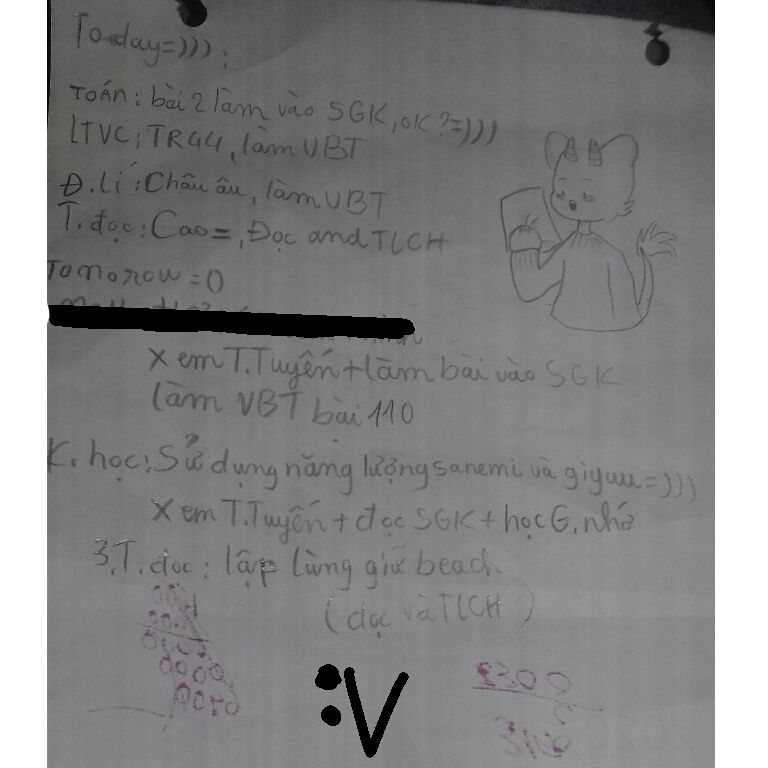 To-day=))):
TOÁN: bài 2 làm vào SGK, OK?=)))
LTVC: TR44, làm VBT
Đ.lí: Châu âu, làm VBT
T. đọc: Cao=, Đọc and TLCH
Tomorow=0
X em T.Tuyến+làm bài vào SGK
làm VBT bài 110
K. học: Sử dụng năng lượng sanemi và giyuu=)))
X em T.Tuyến + đọc SGK + học G. nhớ
3.T. đọc: lập làng giữ beach
(đọc và TLCH)
:V